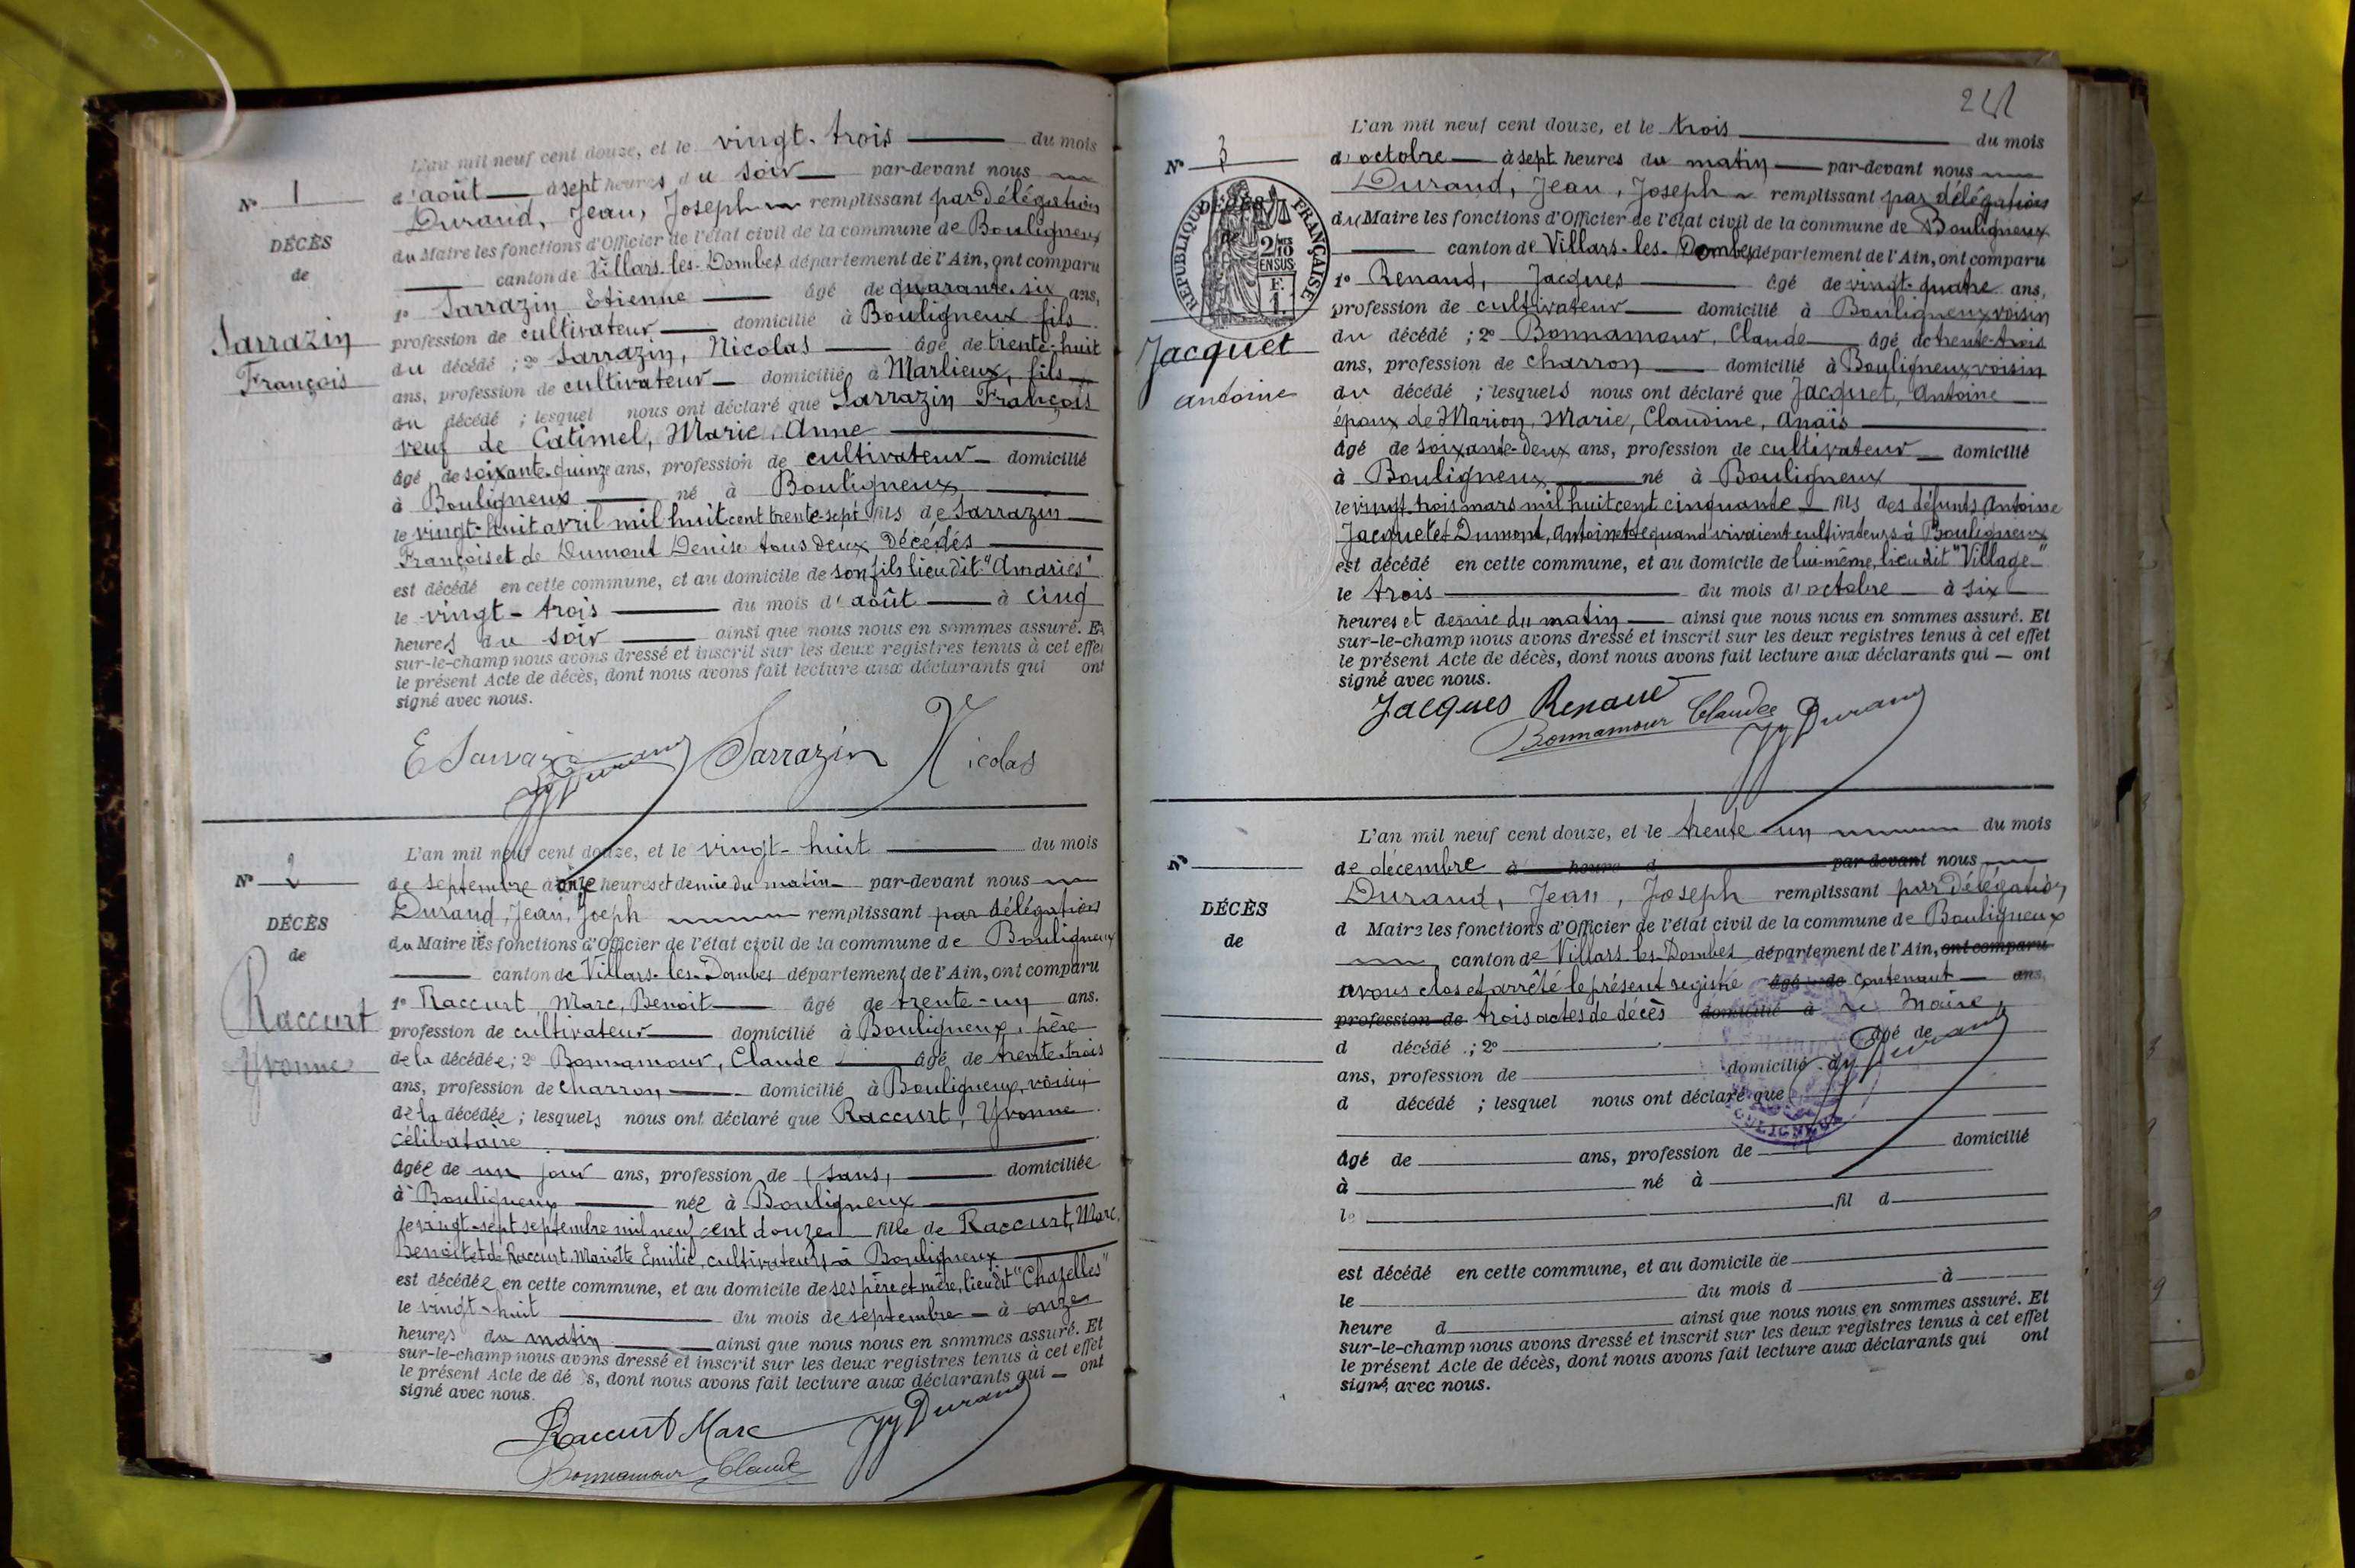 N° 1
DÉCÈS
de
Sarrazin
François
L'an mil neuf cent douze, et le vingt-trois du mois
d'août à sept heures du soir par-devant nous
Durand, Jean, Joseph remplissant par délégation
du Maire les fonctions d'Officier de l'état civil de la commune de Bouligneux
canton de Villars-les-Dombes département de l'Ain, ont comparu
1° Sarrazin Etienne âgé de quarante-six ans,
profession de cultivateur domicilié à Bouligneux fils
du décédé ; 2° Sarrazin, Nicolas âgé de trente-huit
ans, profession de cultivateur domicilié à Marlieux, fils
du décédé ; lesquel nous ont déclaré que Sarrazin François
veuf de Catimel, Marie, Anne
âgé de soixante-quinze ans, profession de cultivateur domicilié
à Bouligneux né à Bouligneux
le vingt-huit avril mil huit cent trente-sept fils de Sarrazin
François et de Dumont Denise tous deux décédés
est décédé en cette commune, et au domicile de son fils lieu dit "Amariés"
le vingt-trois du mois d'août à cinq
heures du soir ainsi que nous nous en sommes assuré. Et
sur-le-champ nous avons dressé et inscrit sur les deux registres tenus à cet effet
le présent Acte de décès, dont nous avons fait lecture aux déclarants qui ont
signé avec nous.
E Sarrazin JJ Durand Sarrazin Nicolas
N° 2
DÉCÈS
de
Raccurt
Yvonne
L'an mil neuf cent douze, et le vingt-huit du mois
de septembre à onze heures et demie du matin par-devant nous
Durand, Jean, Joeph remplissant par délégation
du Maire les fonctions d'Officier de l'état civil de la commune de Bouligneux
canton de Villars-les-Dombes département de l'Ain, ont comparu
1° Raccurt, Marc, Benoit âgé de trente-un ans.
profession de cultivateur domicilié à Bouligneux, père
de la décédée ; 2° Bonnamour, Claude âgé de trente-trois
ans, profession de charron domicilié à Bouligneux, voisin
de la décédée ; lesquels nous ont déclaré que Raccurt, Yvonne
célibataire
âgée de un jour ans, profession de (sans) domiciliée
à Bouligneux née à Bouligneux
le vingt-sept septembre mil neuf cent douze fille de Raccurt, Marc,
Benoit et de Raccurt Mariette Emilie, cultivateurs à Bouligneux
est décédée en cette commune, et au domicile de ses père et mère, lieu dit "Chazelles"
le vingt-huit du mois de septembre à onze
heures du matin ainsi que nous nous en sommes assuré. Et
sur-le-champ nous avons dressé et inscrit sur les deux registres tenus à cet effet
le présent Acte de dé s, dont nous avons fait lecture aux déclarants qui ont
signé avec nous.
Raccurt Marc JJ Durand
Bonnamour Claude
241
N° 3
DÉCÈS
de
RÉPUBLIQUE FRANÇAISE
2/10 EN SUS
Jacquet
Antoine
L'an mil neuf cent douze, et le trois du mois
d'octobre à sept heures du matin par-devant nous
Durand, Jean, Joseph remplissant par délégation
du Maire les fonctions d'Officier de l'état civil de la commune de Bouligneux
canton de Villars-les-Dombes département de l'Ain, ont comparu
1° Renaud, Jacques âgé de vingt-quatre ans,
profession de cultivateur domicilié à Bouligneux voisin
du décédé ; 2° Bonnamour, Claude âgé de trente-trois
ans, profession de charron domicilié à Bouligneux voisin
du décédé ; lesquels nous ont déclaré que Jacquet, Antoine
époux de Marion, Marie, Claudine, Anaïs
âgé de soixante-deux ans, profession de cultivateur domicilié
à Bouligneux né à Bouligneux
le vingt-trois mars mil huit cent cinquante fils des défunts Antoine
Jacquet et Dumont, Antoinette quand vivaient cultivateurs à Bouligneux
est décédé en cette commune, et au domicile de lui-même, lieu dit "Village"
le trois du mois d'octobre à six
heures et demie du matin ainsi que nous nous en sommes assuré. Et
sur-le-champ nous avons dressé et inscrit sur les deux registres tenus à cet effet
le présent Acte de décès, dont nous avons fait lecture aux déclarants qui ont
signé avec nous.
Jacques Renaud
Bonnamour Claude JJ Durand
N°
DÉCÈS
de
L'an mil neuf cent douze, et le trente-un du mois
de décembre à heure d par-devant nous
Durand, Jean, Joseph remplissant par délégation
d Maire les fonctions d'Officier de l'état civil de la commune de Bouligneux
canton de Villars-les-Dombes département de l'Ain, ont comparu
avons clos et arrêté le présent registre âgé de contenant ans,
profession de trois actes de décès domicilié à Le Maire,
d décédé ; 2° âgé de
JJ Durand
ans, profession de domicilié à
d décédé ; lesquel nous ont déclaré que
BOULIGNEUX
âgé de ans, profession de domicilié
à né à
le fil d
est décédé en cette commune, et au domicile de
le du mois d à
heure d ainsi que nous nous en sommes assuré. Et
sur-le-champ nous avons dressé et inscrit sur les deux registres tenus à cet effet
le présent Acte de décès, dont nous avons fait lecture aux déclarants qui ont
signé, avec nous.